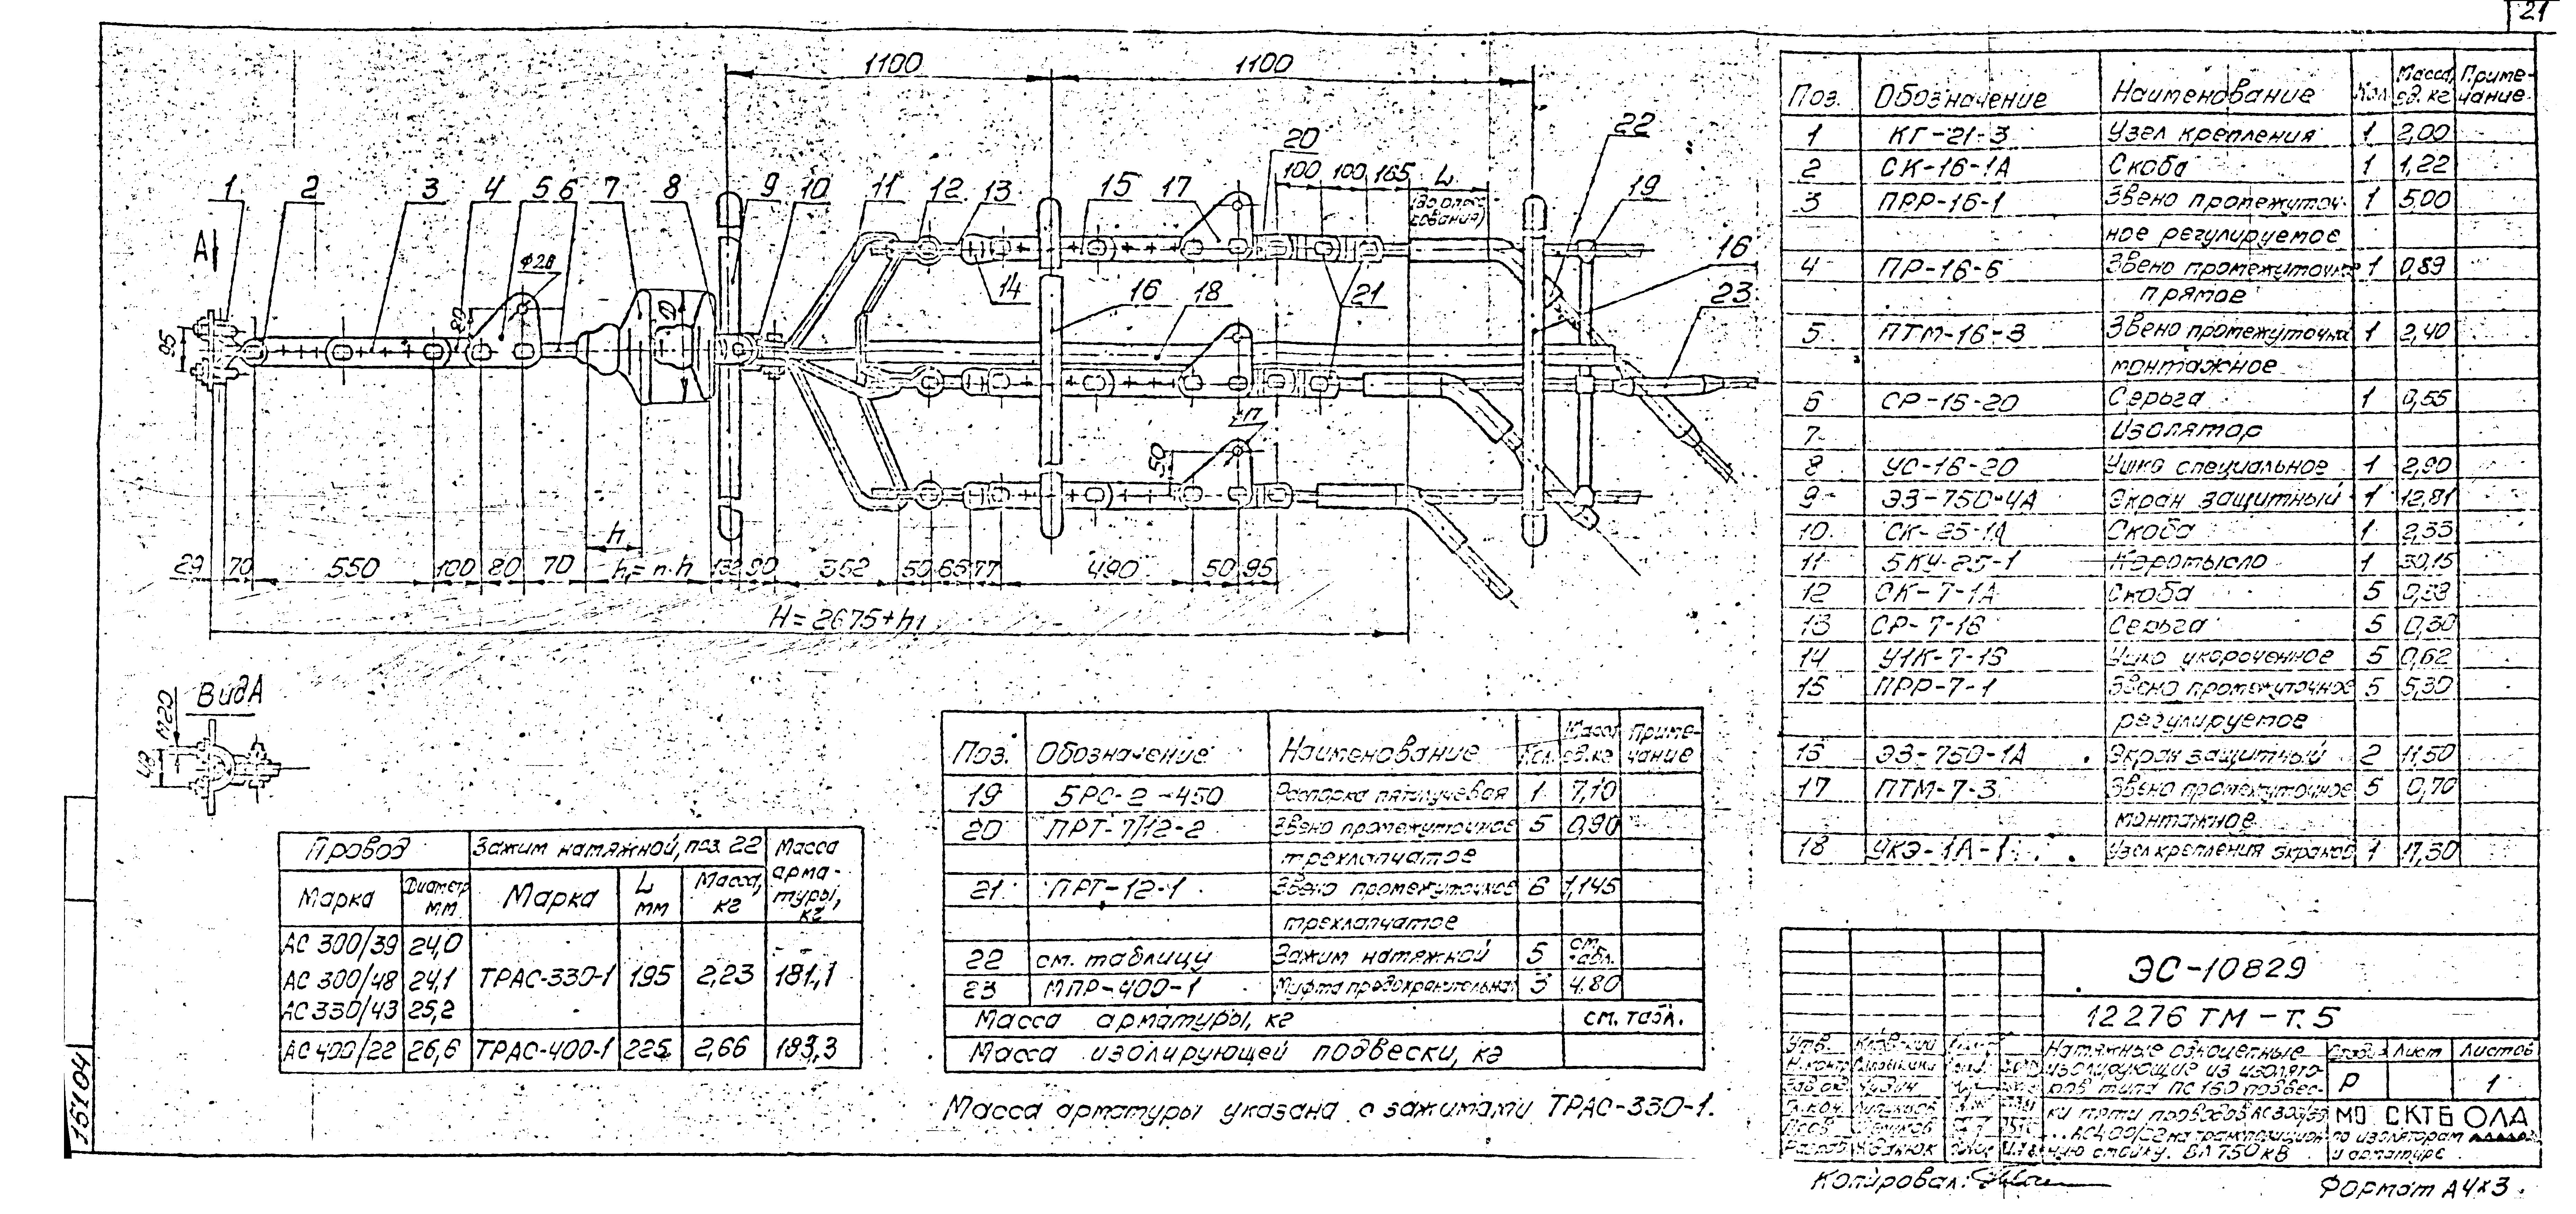 21
1100
1100
1 2 3 4 5 6 7 8 9 10 11 12 13 15 17 20 22 19
100 100 165 L
(до опрес-
сования)
А
ф26
80
95
D
14 16 18 21 16 23
50
h
29 70 550 100 80 70 h₁=n·h 132 90 352 50 65 77 490 50 95
H=2675+h₁
Вид А
М20
Провод Зажим натяжной, поз. 22 Масса арма-туры, кг
Марка Диаметр мм Марка L мм Масса, кг
АС 300/39 24,0
АС 300/48 24,1 ТРАС-330-1 195 2,23 181,1
АС 330/43 25,2
АС 400/22 26,6 ТРАС-400-1 225 2,66 183,3
Поз. Обозначение Наименование Кол. Масса ед. кг Приме-чание
19 5РС-2-450 Распорка пятилучевая 1 7,10
20 ПРТ-7/12-2 Звено промежуточное 5 0,90
трехлапчатое
21 ПРТ-12-1 Звено промежуточное 6 1,145
трехлапчатое
22 см. таблицу Зажим натяжной 5 см. табл.
23 МПР-400-1 Муфта предохранительная 3 4,80
Масса арматуры, кг см. табл.
Масса изолирующей подвески, кг
Масса арматуры указана с зажимами ТРАС-330-1.
Поз. Обозначение Наименование Кол. Масса ед. кг Приме-чание
1 КГ-21-3 Узел крепления 1 2,00
2 СК-16-1А Скоба 1 1,22
3 ПРР-16-1 Звено промежуточ- 1 5,00
ное регулируемое
4 ПР-16-6 Звено промежуточное 1 0,89
прямое
5 ПТМ-16-3 Звено промежуточное 1 2,40
монтажное
6 СР-16-20 Серьга 1 0,55
7 Изолятор
8 УС-16-20 Ушко специальное 1 2,90
9 ЭЗ-750-4А Экран защитный 1 12,81
10 СК-25-1А Скоба 1 2,35
11 5КУ-25-1 Коромысло 1 30,15
12 СК-7-1А Скоба 5 0,38
13 СР-7-16 Серьга 5 0,30
14 У1К-7-16 Ушко укороченное 5 0,62
15 ПРР-7-1 Звено промежуточное 5 5,30
регулируемое
16 ЭЗ-750-1А Экран защитный 2 11,50
17 ПТМ-7-3 Звено промежуточное 5 0,70
монтажное
18 УКЭ-1А-1 Узел крепления экранов 1 17,30
ЭС-10829
12276 ТМ-Т.5
Утв.
Н.контр
Разраб
Натяжные одноцепные
изолирующие из изолято-
ров типа ПС 160 подвес-
ки пяти проводов АС 300/39
...АС400/22 на транспозицион-
ную стойку. ВЛ 750 кВ
Стадия Лист Листов
Р 1
МО СКТБ ОЛА
по изоляторам
и арматуре
Копировал:
Формат А4х3
15104